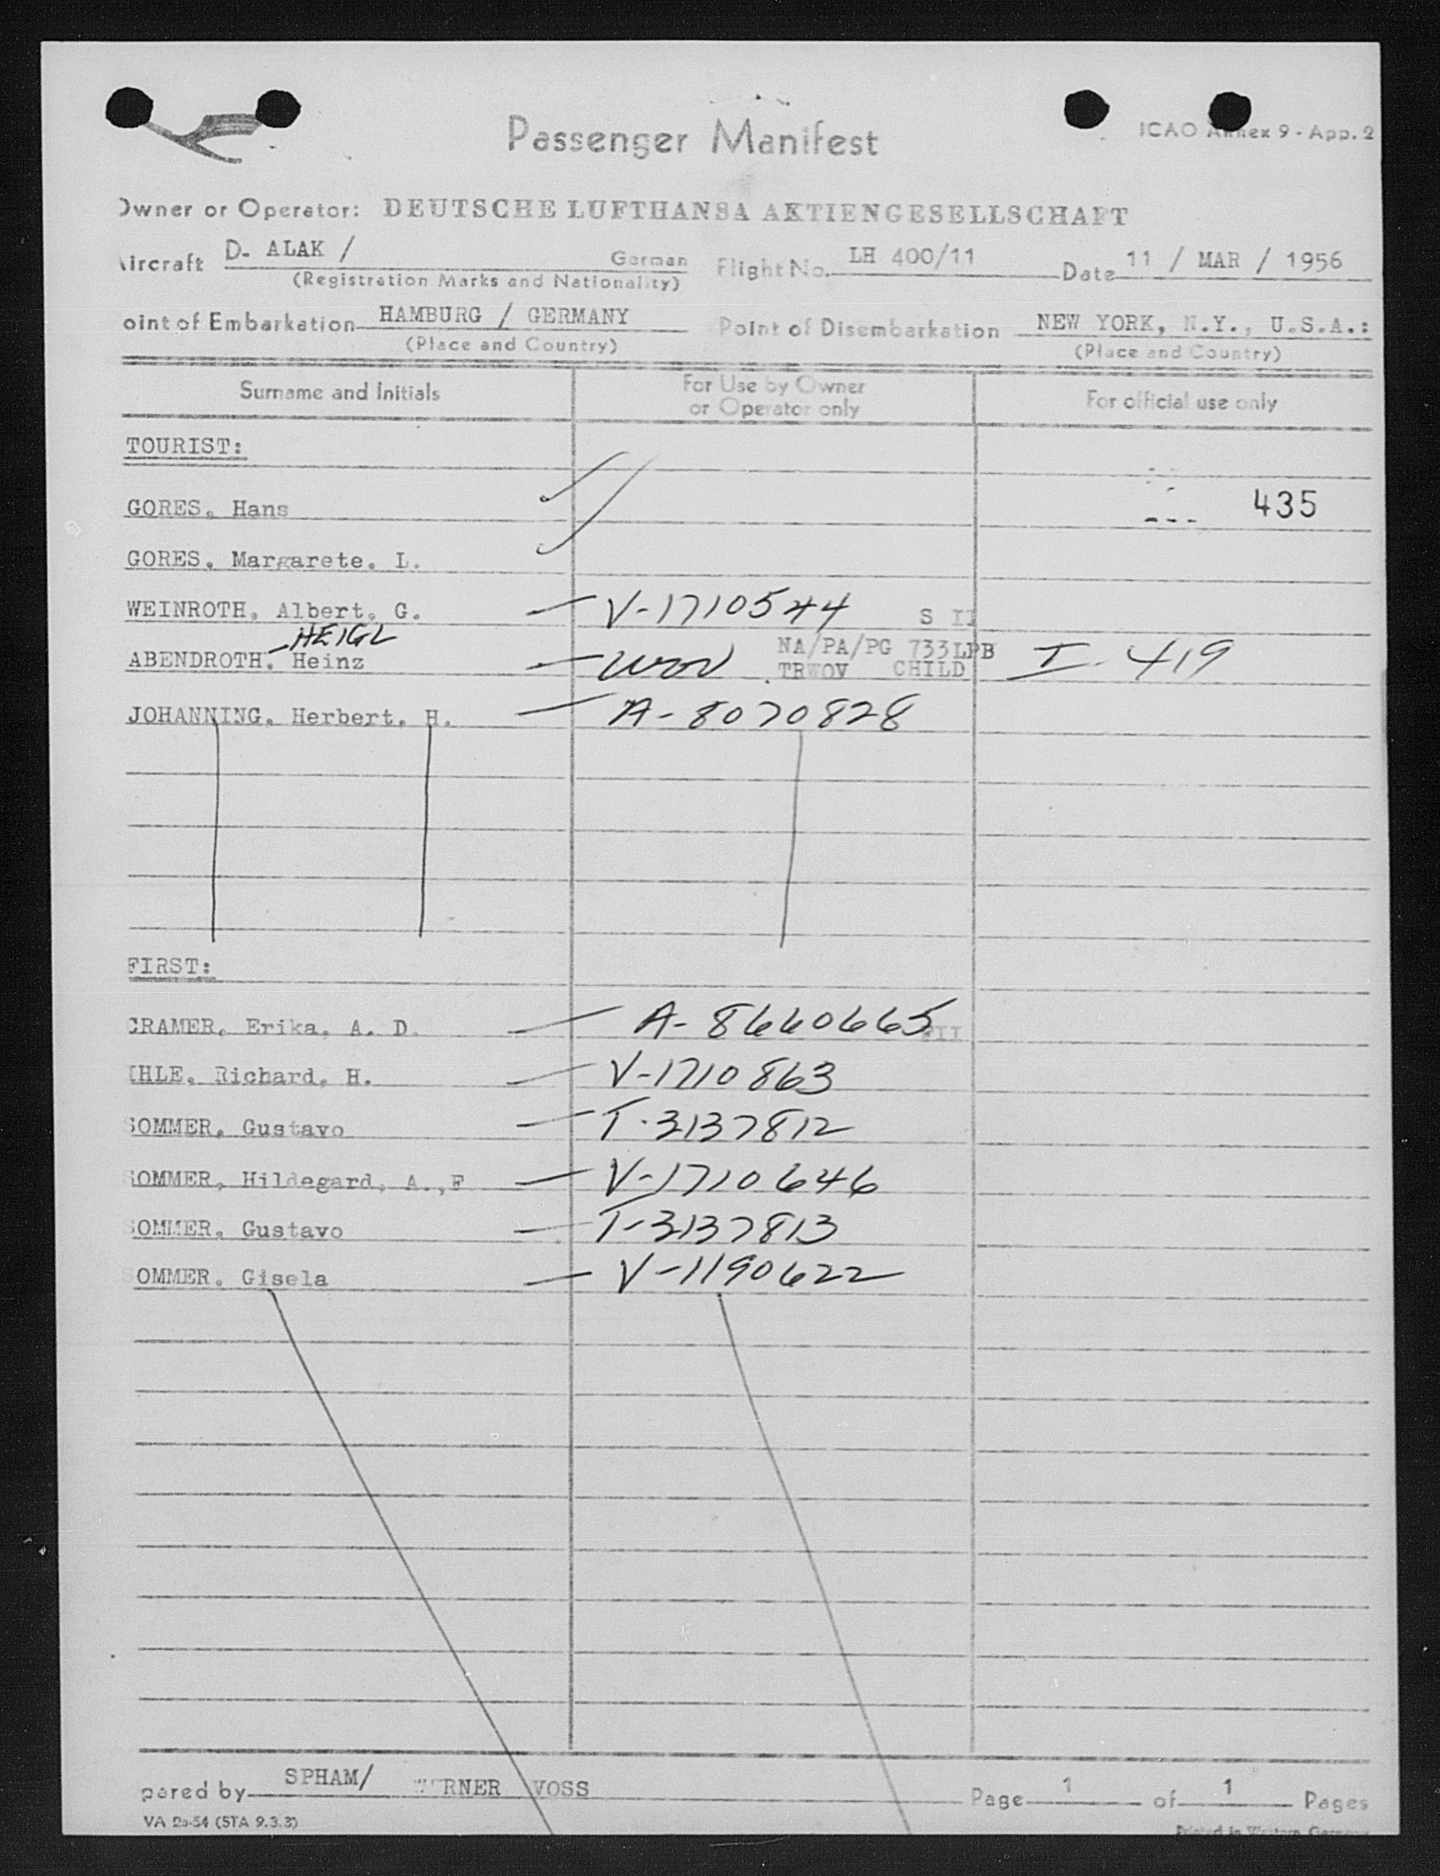 Passenger Manifest
ICAO Annex 9 - App. 2
Owner or Operator: DEUTSCHE LUFTHANSA AKTIENGESELLSCHAFT
Aircraft D. ALAK / German Flight No. LH 400/11 Date 11 / MAR / 1956
(Registration Marks and Nationality)
oint of Embarkation HAMBURG / GERMANY Point of Disembarkation NEW YORK, N.Y., U.S.A.:
(Place and Country) (Place and Country)
Surname and Initials For Use by Owner or Operator only For official use only
TOURIST:
GORES, Hans 435
GORES, Margarete, L.
WEINROTH, Albert, G. V-1710544 S II
HEIGL
ABENDROTH, Heinz WOV NA/PA/PG 733LPB I-419
TRWOV CHILD
JOHANNING, Herbert, H. A-8070828
FIRST:
CRAMER, Erika, A. D. A-8660665 II
IHLE, Richard, H. V-1710863
SOMMER, Gustavo T-3137812
SOMMER, Hildegard, A.,F V-1710646
SOMMER, Gustavo T-3137813
SOMMER, Gisela V-1190622
pared by SPHAM/ WERNER VOSS Page 1 of 1 Pages
VA 2a-54 (STA 9.3.3)
Printed in Western Germany